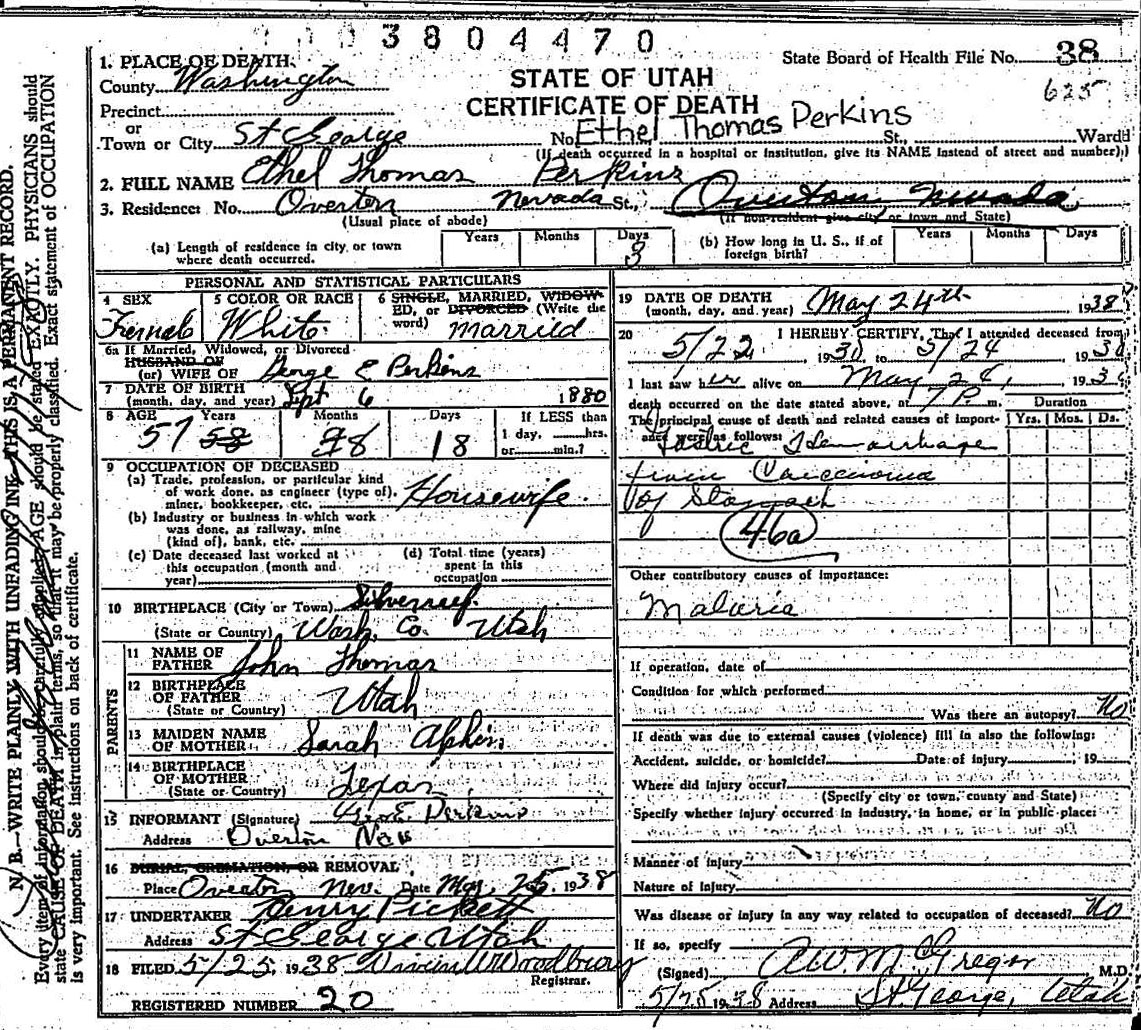 3804470
1. PLACE OF DEATH.
County Washington
Precinct
or
Town or City St George
STATE OF UTAH
CERTIFICATE OF DEATH
State Board of Health File No. 38
625
No. Ethel Thomas Perkins St., Ward
(If death occurred in a hospital or institution, give its NAME instead of street and number)
2. FULL NAME Ethel Thomas Perkins
3. Residence: No. Overton Nevada St., Overton, Nevada
(Usual place of abode) (If non-resident give city or town and State)
(a) Length of residence in city or town where death occurred. Years Months Days 3
(b) How long in U. S., if of foreign birth? Years Months Days
PERSONAL AND STATISTICAL PARTICULARS
4 SEX Female
5 COLOR OR RACE White
6 SINGLE, MARRIED, WIDOWED, or DIVORCED (Write the word) Married
6a If Married, Widowed, or Divorced
HUSBAND OF
(or) WIFE OF George E Perkins
7 DATE OF BIRTH
(month, day, and year) Sept 6 1880
8 AGE Years 57 58 Months 8 Days 18 If LESS than 1 day, hrs. or min.?
9 OCCUPATION OF DECEASED
(a) Trade, profession, or particular kind of work done, as engineer (type of), miner, bookkeeper, etc. Housewife.
(b) Industry or business in which work was done, as railway, mine (kind of), bank, etc.
(c) Date deceased last worked at this occupation (month and year)
(d) Total time (years) spent in this occupation
10 BIRTHPLACE (City or Town) Silverreef
(State or Country) Wash. Co. Utah
PARENTS
11 NAME OF FATHER John Thomas
12 BIRTHPLACE OF FATHER (State or Country) Utah
13 MAIDEN NAME OF MOTHER Sarah
14 BIRTHPLACE OF MOTHER (State or Country) Texas
15 INFORMANT (Signature) Geo E. Perkins
Address Overton Nev
16 BURIAL, CREMATION, OR REMOVAL
Place Overton Nev. Date May 25, 1938
17 UNDERTAKER Henry Pickett
Address St George Utah
18 FILED 5/25, 1938 Woodbury
Registrar.
REGISTERED NUMBER 20
19 DATE OF DEATH
(month, day, and year) May 24th 1938
20 I HEREBY CERTIFY, That I attended deceased from
5/22, 1938 to 5/24 1938
I last saw her alive on May 24, 1938
death occurred on the date stated above, at 7 P. m.
Duration
Yrs. Mos. Ds.
The principal cause of death and related causes of importance were as follows:
Gastric Hemorrhage
from Carcinoma
of Stomach
46a
Other contributory causes of importance:
Malaria
If operation, date of
Condition for which performed
Was there an autopsy? No
If death was due to external causes (violence) fill in also the following:
Accident, suicide, or homicide? Date of injury , 19
Where did injury occur?
(Specify city or town, county and State)
Specify whether injury occurred in industry, in home, or in public place:
Manner of injury
Nature of injury
Was disease or injury in any way related to occupation of deceased? No
If so, specify
(Signed) A.W. McGregor M.D.
5/25 1938 Address St. George, Utah
N. B.—WRITE PLAINLY WITH UNFADING INK—THIS IS A PERMANENT RECORD.
Every item of information should be carefully supplied. AGE should be stated EXACTLY. PHYSICIANS should
state CAUSE OF DEATH in plain terms, so that it may be properly classified. Exact statement of OCCUPATION
is very important. See instructions on back of certificate.